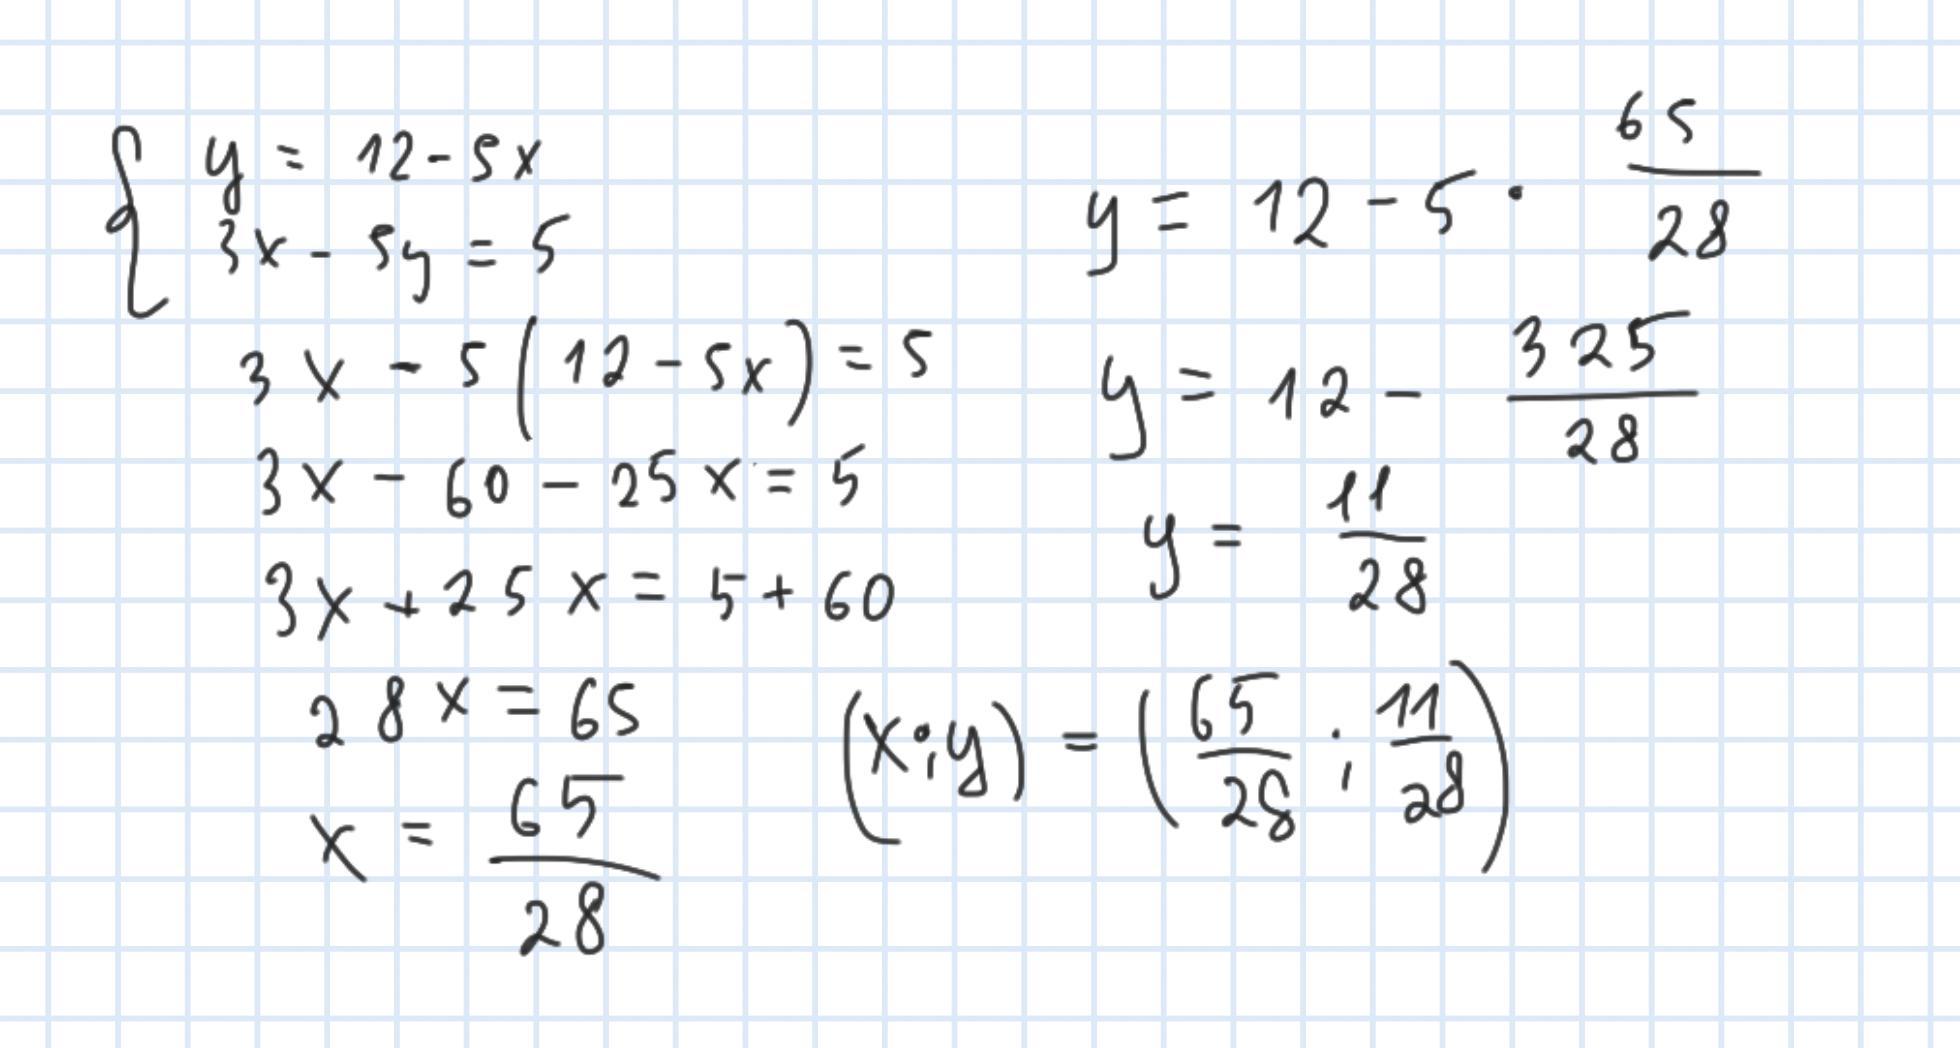 { y = 12 - 5x
3x - 5y = 5
3x - 5(12 - 5x) = 5
3x - 60 - 25x = 5
3x + 25x = 5 + 60
28x = 65
x = 65/28
y = 12 - 5 · 65/28
y = 12 - 325/28
y = 11/28
(x;y) = (65/28 ; 11/28)